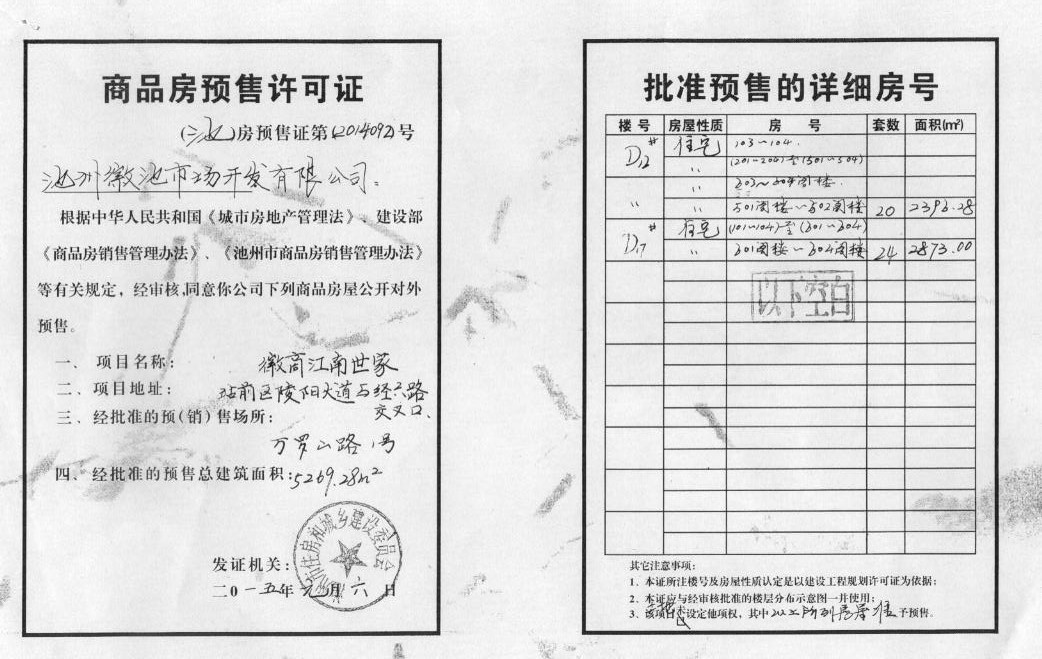 商品房预售许可证
(池)房预售证第(2014092)号
池州徽池市场开发有限公司:
根据中华人民共和国《城市房地产管理法》、建设部
《商品房销售管理办法》、《池州市商品房销售管理办法》
等有关规定，经审核,同意你公司下列商品房屋公开对外
预售。
一、项目名称: 徽商江南世家
二、项目地址: 站前区陵阳大道与经六路
交叉口、
三、经批准的预(销)售场所:
万罗山路1号
四、经批准的预售总建筑面积:5269.28m²
市住房和城乡建设委员会
发证机关:
二0一五年元月六日
批准预售的详细房号
楼号 房屋性质 房号 套数 面积(m²)
D12# 住宅 103~104.
(201~204)至(501~504)
〃 203~304阁楼.
〃 〃 501阁楼~502阁楼 20 2396.28
D17# 住宅 (101~104)至(601~604)
〃 601阁楼~604阁楼 24 2873.00
以下空白
其它注意事项:
1、本证所注楼号及房屋性质认定是以建设工程规划许可证为依据;
2、本证应与经审核批准的楼层分布示意图一并使用;
3、该项目设定他项权，其中以上所列房屋准予预售。